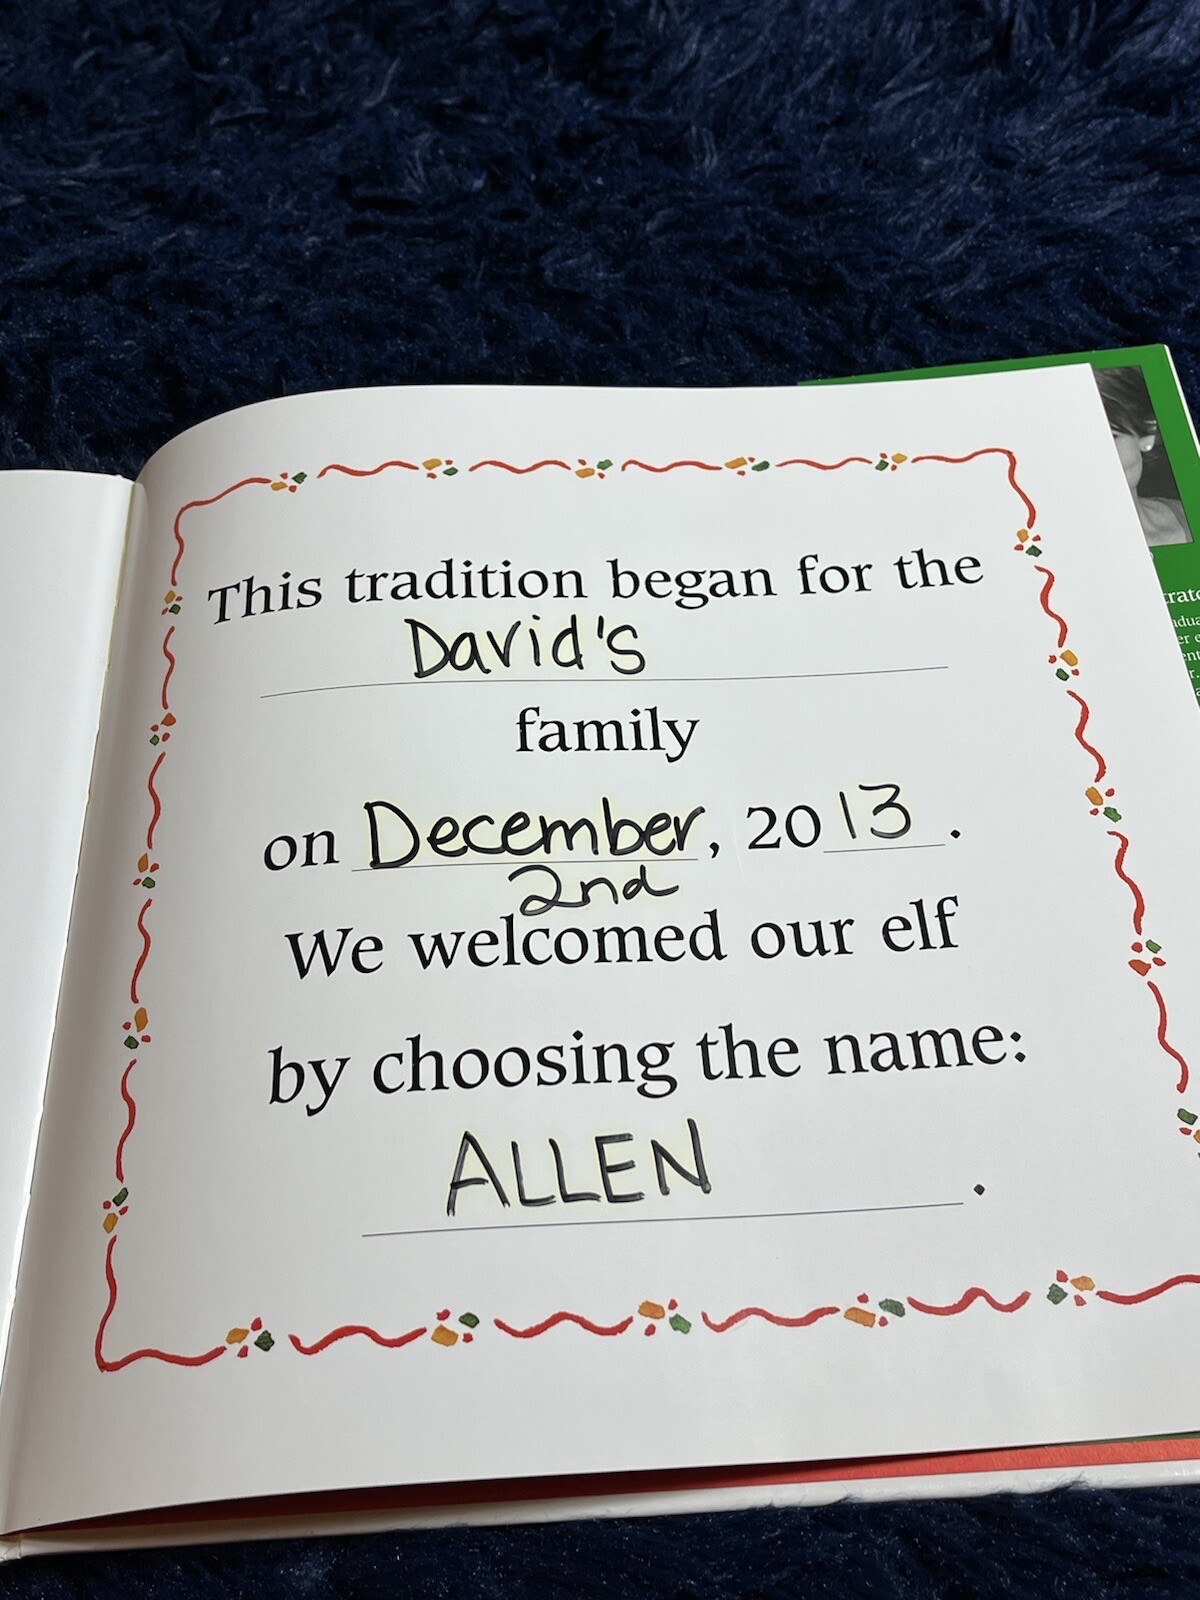 This tradition began for the
David's
family
on December, 2013.
2nd
We welcomed our elf
by choosing the name:
ALLEN.